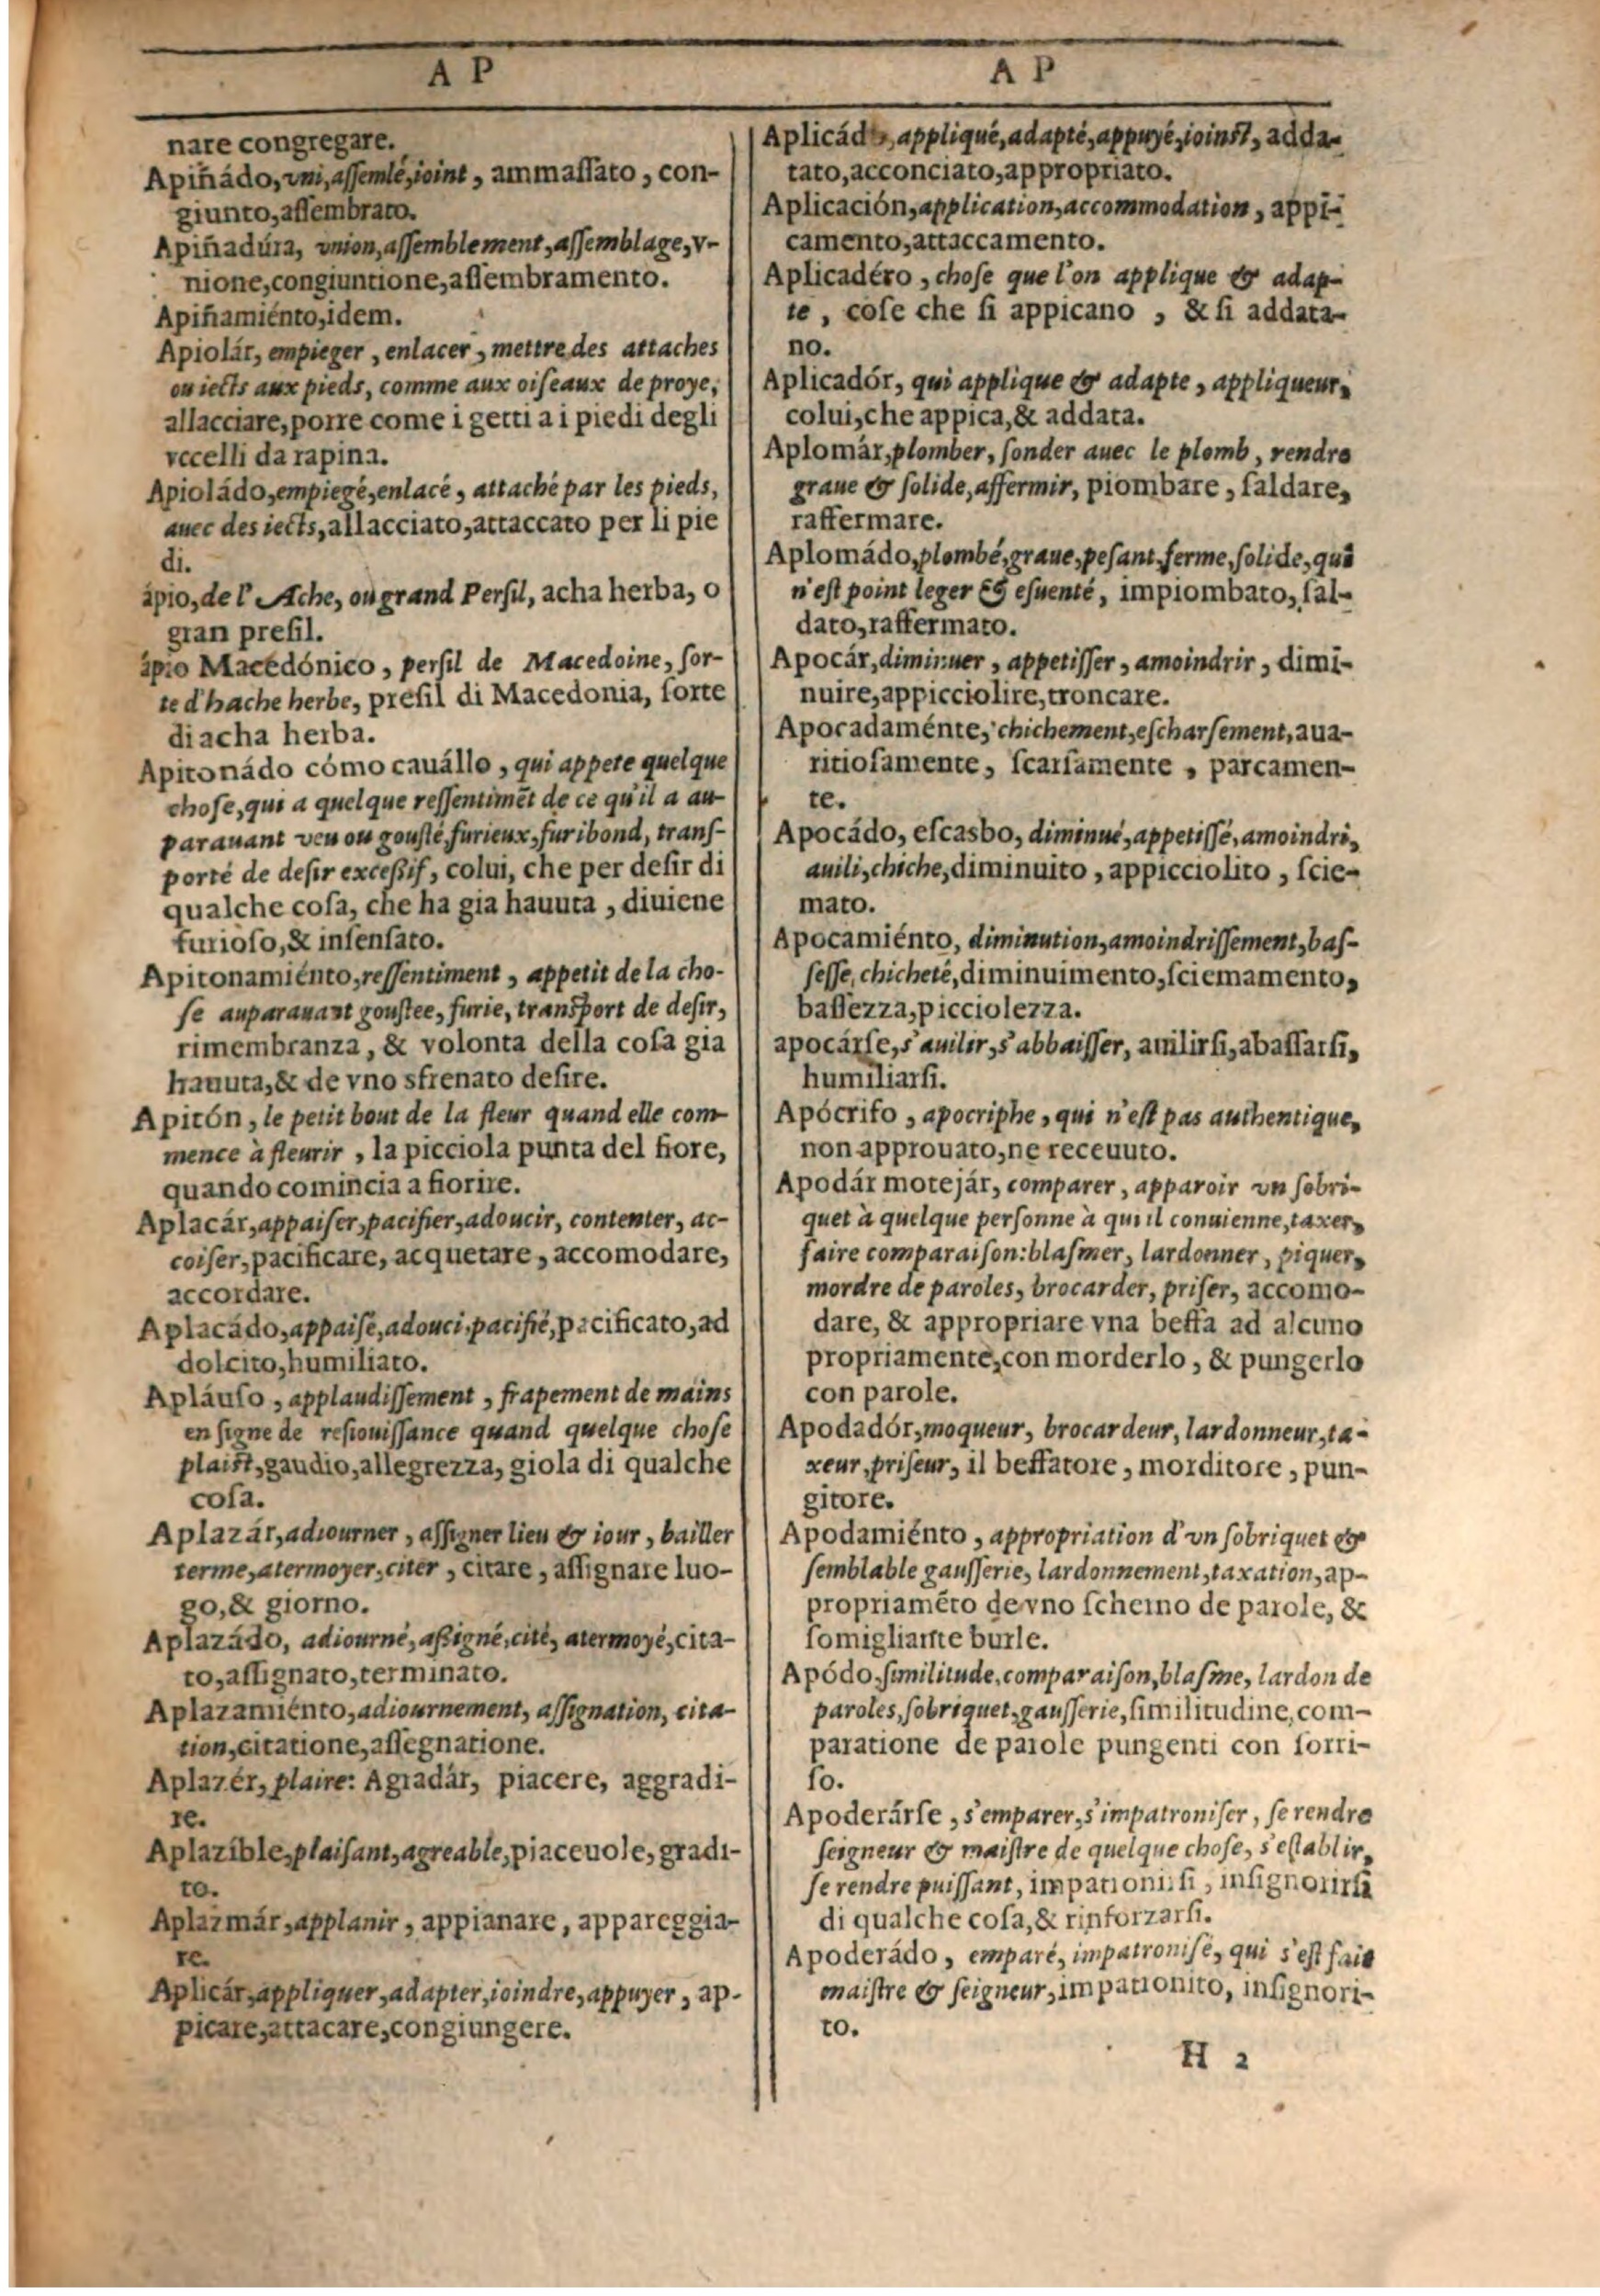 A P
nare congregare.
Apiñádo, vni, assemlé, ioint, ammassato, con-
giunto, assembrato.
Apiñadúra, vnion, assemblement, assemblage, v-
nione, congiuntione, assembramento.
Apiñamiénto, idem.
Apiolár, empieger, enlacer, mettre des attaches
ou iects aux pieds, comme aux oiseaux de proye,
allacciare, porre come i getti a i piedi degli
vccelli da rapina.
Apioládo, empiegé, enlacé, attaché par les pieds,
auec des iects, allacciato, attaccato per li pie
di.
ápio, de l'Ache, ou grand Persil, acha herba, o
gran presil.
ápio Macedónico, persil de Macedoine, sor-
te d'hache herbe, presil di Macedonia, sorte
di acha herba.
Apitonádo cómo cauállo, qui appete quelque
chose, qui a quelque ressentimēt de ce qu'il a au-
parauant veu ou gousté, furieux, furibond, trans-
porté de desir excessif, colui, che per desir di
qualche cosa, che ha gia hauuta, diuiene
furioso, & insensato.
Apitonamiénto, ressentiment, appetit de la cho-
se auparauant goustee, furie, transport de desir,
rimembranza, & volonta della cosa gia
hauuta, & de vno sfrenato desire.
Apitón, le petit bout de la fleur quand elle com-
mence à fleurir, la picciola punta del fiore,
quando comincia a fiorire.
Aplacár, appaiser, pacifier, adoucir, contenter, ac-
coiser, pacificare, acquetare, accomodare,
accordare.
Aplacádo, appaisé, adouci, pacifié, pacificato, ad
dolcito, humiliato.
Apláuso, applaudissement, frapement de mains
en signe de resiouissance quand quelque chose
plaist, gaudio, allegrezza, giola di qualche
cosa.
Aplazár, adiourner, assigner lieu & iour, bailler
terme, atermoyer, citer, citare, assignare luo-
go, & giorno.
Aplazádo, adiourné, assigné, cité, atermoyé, cita-
to, assignato, terminato.
Aplazamiénto, adiournement, assignation, cita-
tion, citatione, assegnatione.
Aplazér, plaire: Agradár, piacere, aggradi-
re.
Aplazíble, plaisant, agreable, piaceuole, gradi-
to.
Aplazmár, applanir, appianare, appareggia-
re.
Aplicár, appliquer, adapter, ioindre, appuyer, ap-
picare, attacare, congiungere.
A P
Aplicádo, appliqué, adapté, appuyé, ioinst, adda-
tato, acconciato, appropriato.
Aplicación, application, accommodation, appi-
camento, attaccamento.
Aplicadéro, chose que l'on applique & adap-
te, cose che si appicano, & si addata-
no.
Aplicadór, qui applique & adapte, appliqueur,
colui, che appica, & addata.
Aplomár, plomber, sonder auec le plomb, rendre
graue & solide, affermir, piombare, saldare,
raffermare.
Aplomádo, plombé, graue, pesant, ferme, solide, qui
n'est point leger & esuenté, impiombato, sal-
dato, raffermato.
Apocár, diminuer, appetisser, amoindrir, dimi-
nuire, appicciolire, troncare.
Apocadaménte, chichement, escharsement, aua-
ritiosamente, scarsamente, parcamen-
te.
Apocádo, escasbo, diminué, appetissé, amoindri,
auili, chiche, diminuito, appicciolito, scie-
mato.
Apocamiénto, diminution, amoindrissement, bas-
sesse, chicheté, diminuimento, sciemamento,
bassezza, picciolezza.
apocárse, s'auilir, s'abbaisser, auilirsi, abassarsi,
humiliarsi.
Apócrifo, apocriphe, qui n'est pas authentique,
non approuato, ne receuuto.
Apodár motejár, comparer, apparoir vn sobri-
quet à quelque personne à qui il conuienne, taxer,
faire comparaison: blasmer, lardonner, piquer,
mordre de paroles, brocarder, priser, accomo-
dare, & appropriare vna beffa ad alcuno
propriamente, con morderlo, & pungerlo
con parole.
Apodadór, moqueur, brocardeur, lardonneur, ta-
xeur, priseur, il beffatore, morditore, pun-
gitore.
Apodamiénto, appropriation d'vn sobriquet &
semblable gausserie, lardonnement, taxation, ap-
propriamēto de vno scherno de parole, &
somigliante burle.
Apódo, similitude, comparaison, blasme, lardon de
paroles, sobriquet, gausserie, similitudine, com-
paratione de parole pungenti con sorri-
so.
Apoderárse, s'emparer, s'impatroniser, se rendre
seigneur & maistre de quelque chose, s'establir,
se rendre puissant, impationirsi, insignorirsi
di qualche cosa, & rinforzarsi.
Apoderádo, emparé, impatronisé, qui s'est fait
maistre & seigneur, impationito, insignori-
to.
H 2